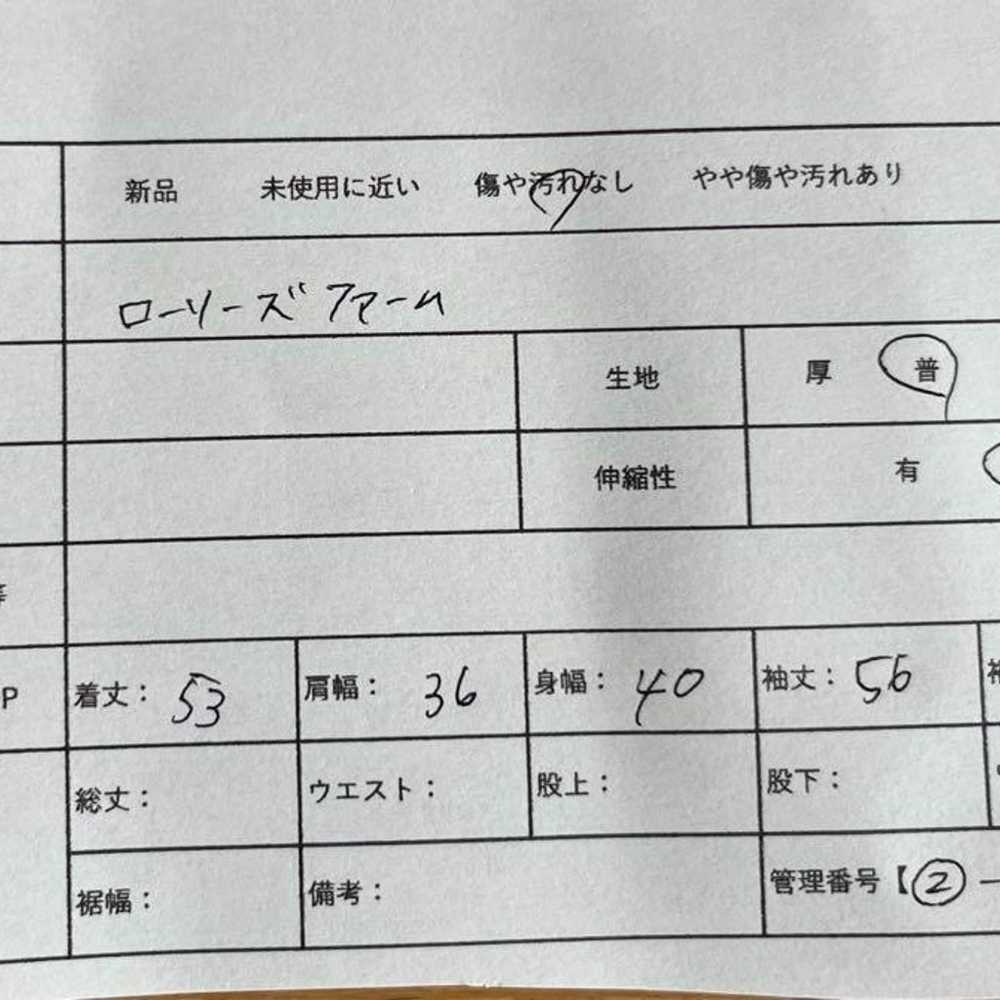 新品 未使用に近い 傷や汚れなし やや傷や汚れあり
ローリーズファーム
生地 厚 普
伸縮性 有
P 着丈： 53 肩幅： 36 身幅： 40 袖丈： 56
総丈： ウエスト： 股上： 股下：
裾幅： 備考： 管理番号【②ー